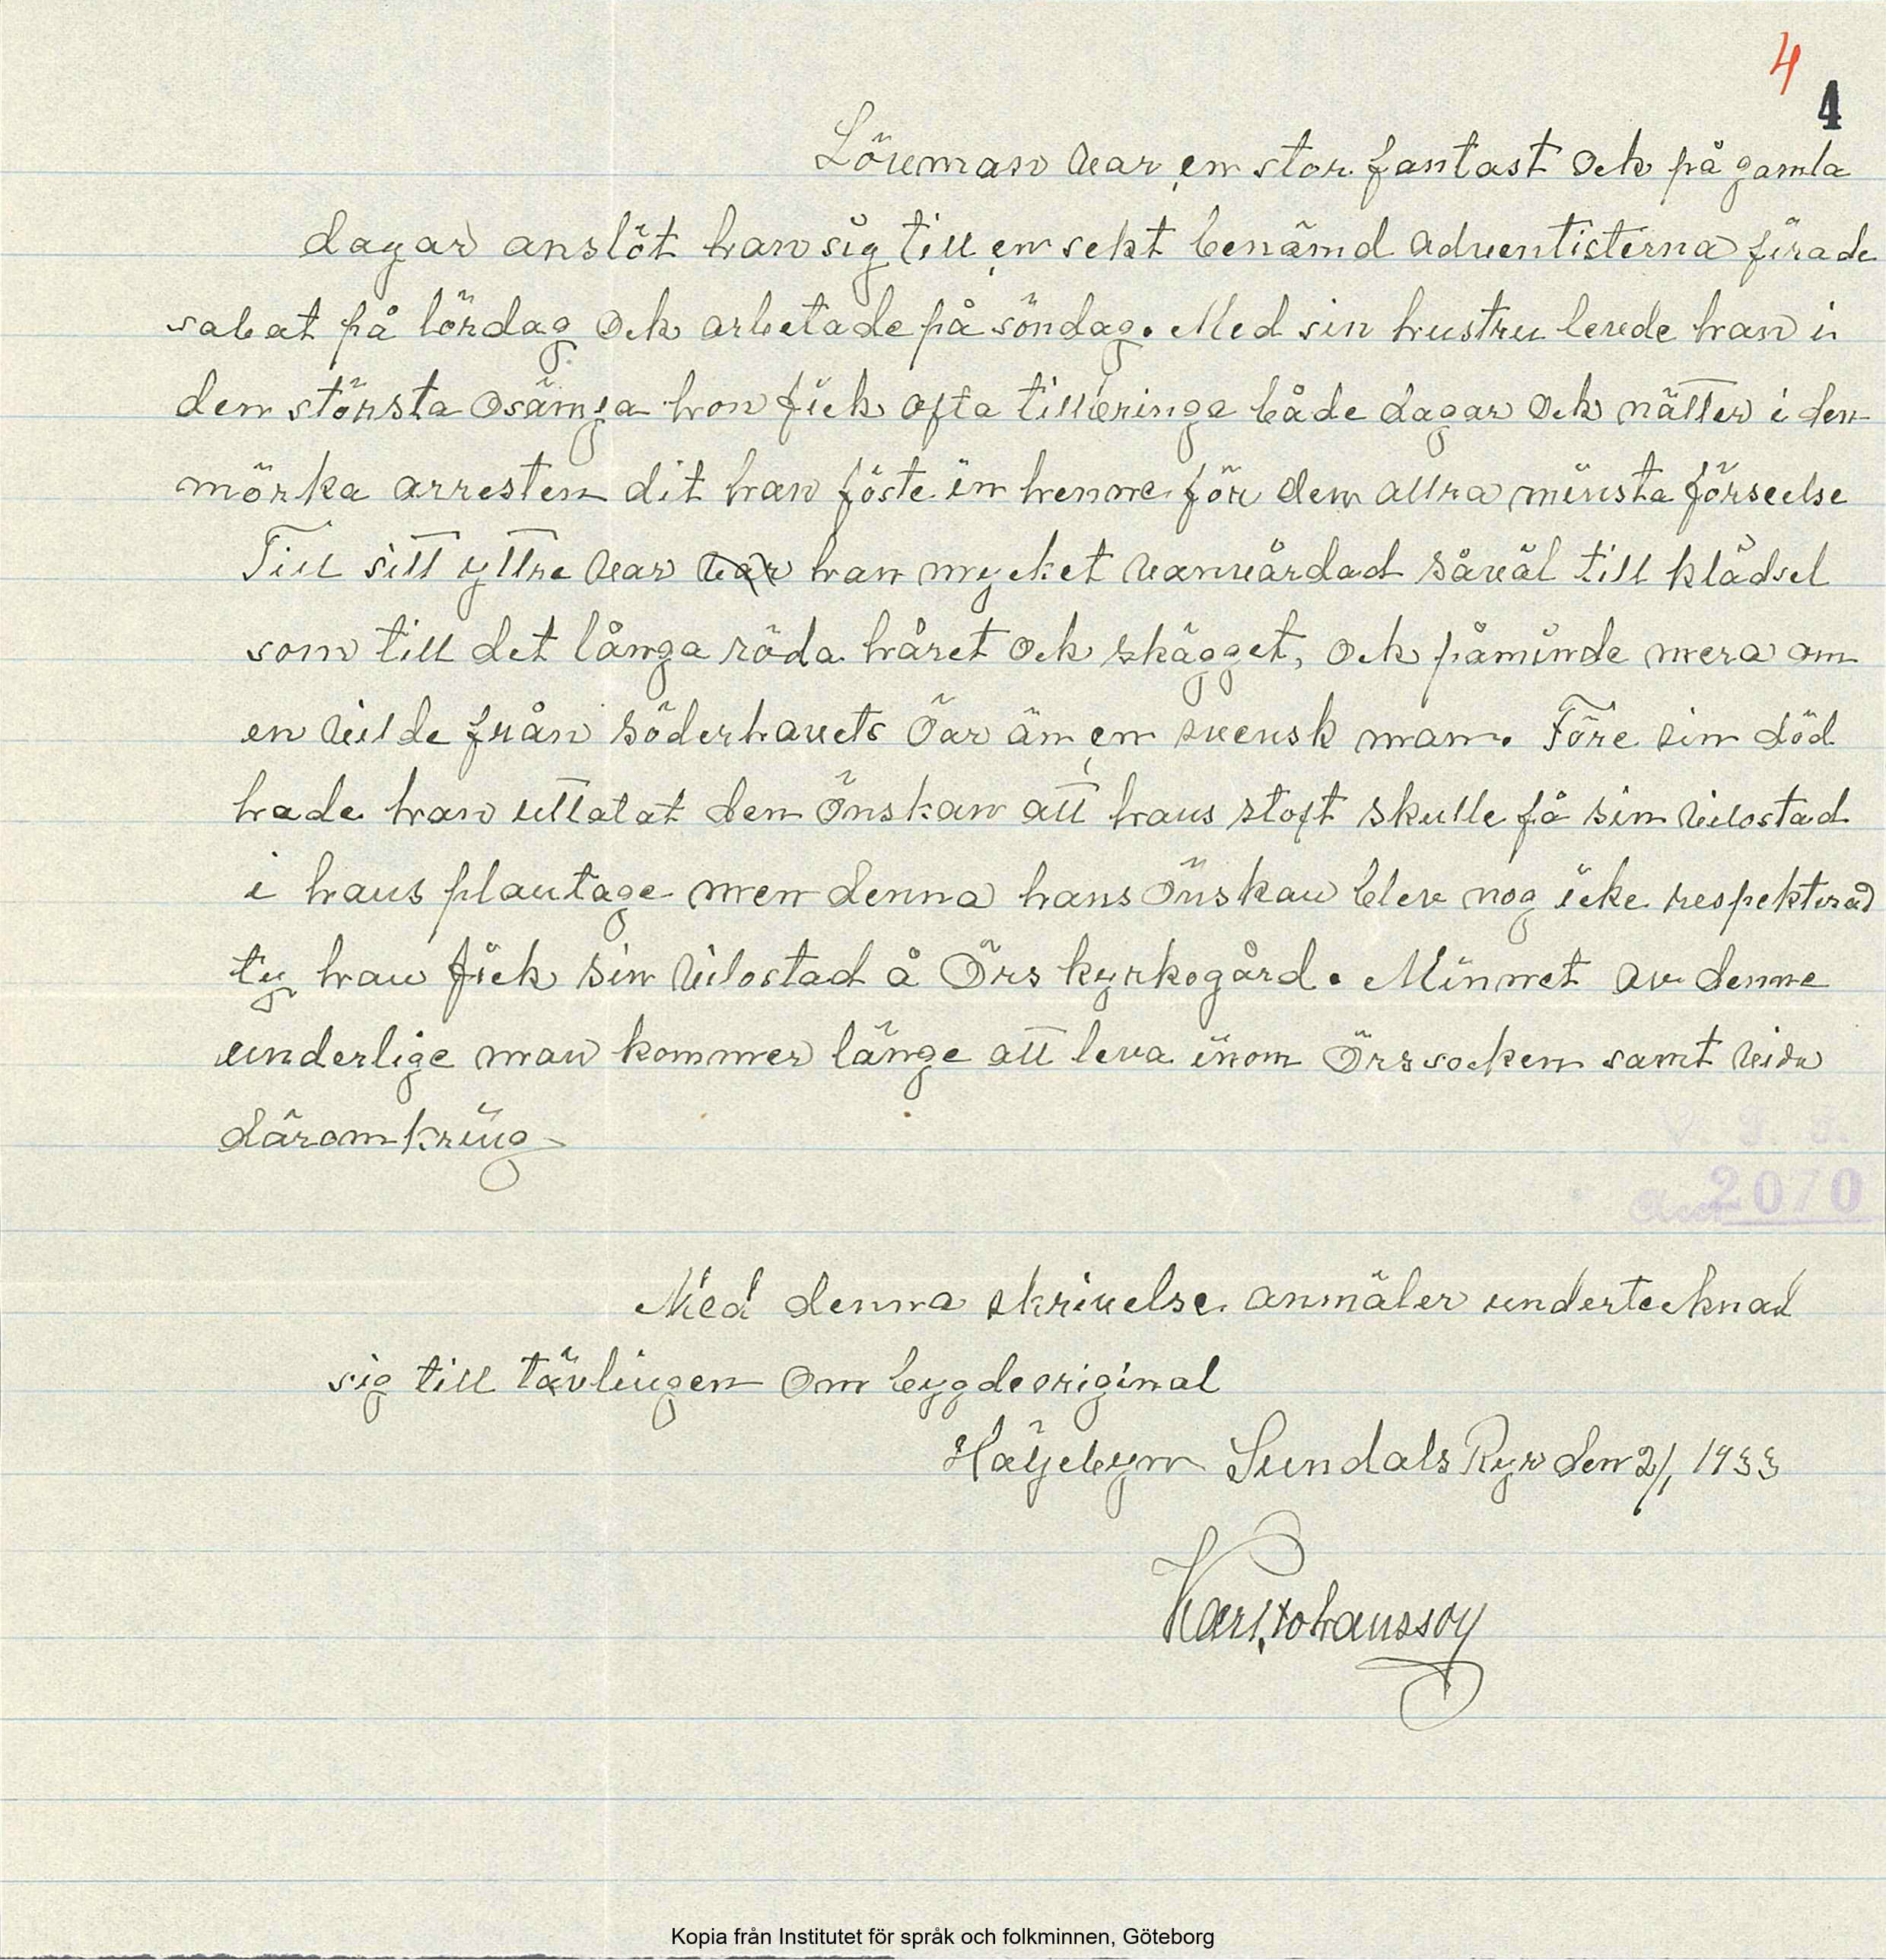 4
4
Löveman var en stor fantast Ock på gamla
dagar anslöt han sig till en sekt benämd adventisterna firade
sabat på lördag Ock arbetade på söndag. Med sin hustru levde han i
den största Osämja hon fick ofta tillbringa både dagar Ock nätter i den
mörka arresten dit han föste in henne för den allra minsta förseelse
Till sitt yttre var var han mycket vanvårdad såväl till klädsel
som till det långa röda håret Ock skägget, Ock påminde mera om
en vilde från Söderhavets Öar än en svensk man. Före sin död
hade han uttalat den Önskan att hans stoft skulle få sin vilostad
i hans plantage men denna hans Önskan blev nog icke respekterad
ty han fick sin vilostad å Örs kyrkogård. Minnet av denne
underlige man kommer länge att leva inom Örs socken samt vida
däromkring
V. S. F.
Acc 2070
Med denna skrivelse anmäler undertecknad
sig till tävlingen Om bygdeoriginal
Häljebyn Sundals Ryr den 2/1 1933
Karl Johansson
Kopia från Institutet för språk och folkminnen, Göteborg